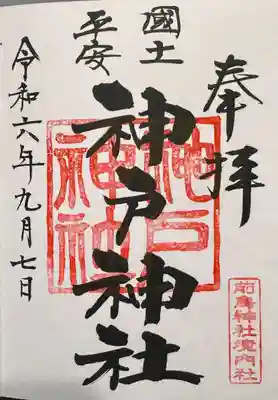 奉拝
國土
平安
神戸神社
神戸
神社
令和六年九月七日
前鳥神社境内社